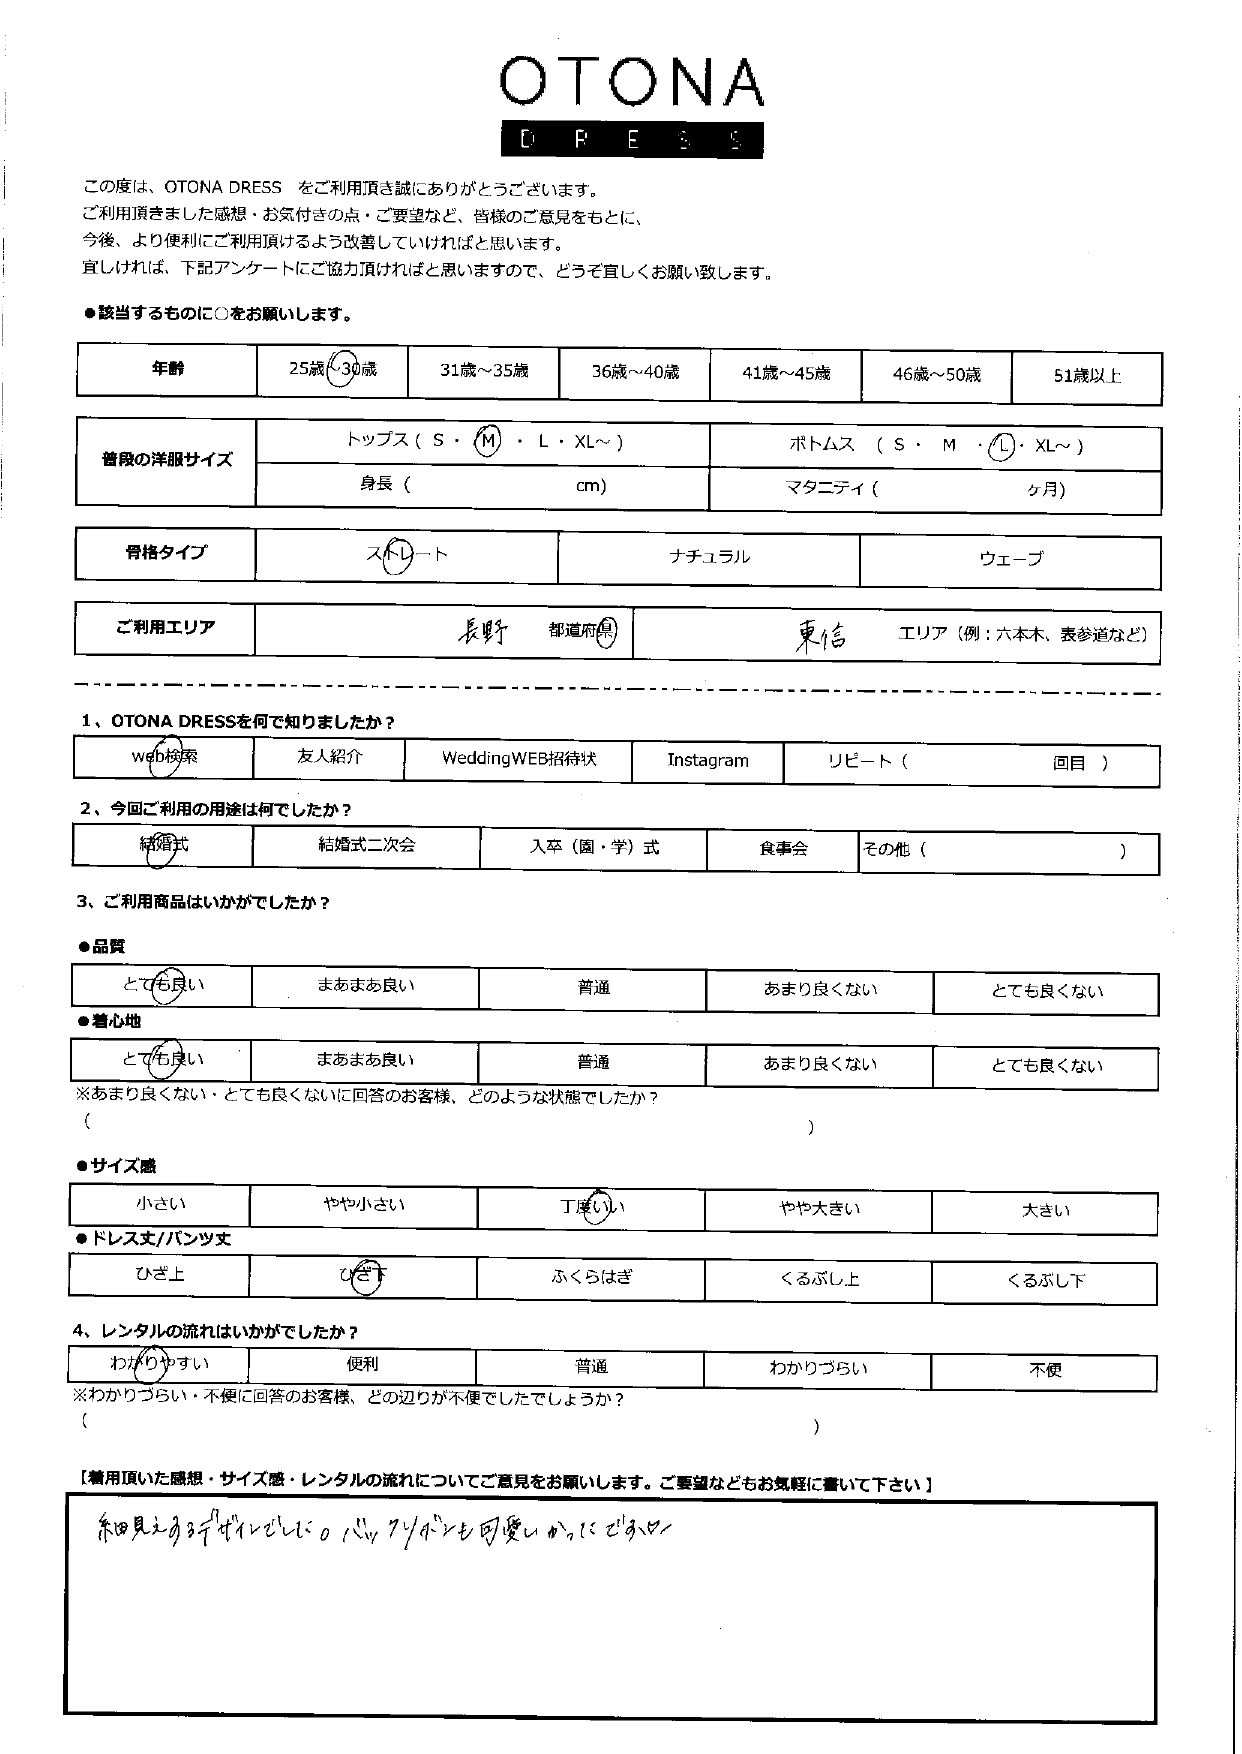 OTONA
DRESS
この度は、OTONA DRESS をご利用頂き誠にありがとうございます。
ご利用頂きました感想・お気付きの点・ご要望など、皆様のご意見をもとに、
今後、より便利にご利用頂けるよう改善していければと思います。
宜しければ、下記アンケートにご協力頂ければと思いますので、どうぞ宜しくお願い致します。
●該当するものに○をお願いします。
年齢 25歳〜30歳 31歳〜35歳 36歳〜40歳 41歳〜45歳 46歳〜50歳 51歳以上
普段の洋服サイズ トップス ( S ・ M ・ L ・ XL〜 ) ボトムス ( S ・ M ・ L ・ XL〜 )
身長 ( cm) マタニティ ( ヶ月)
骨格タイプ ストレート ナチュラル ウェーブ
ご利用エリア 長野 都道府県 東信 エリア（例：六本木、表参道など）
1、OTONA DRESSを何で知りましたか？
web検索 友人紹介 WeddingWEB招待状 Instagram リピート ( 回目 )
2、今回ご利用の用途は何でしたか？
結婚式 結婚式二次会 入卒（園・学）式 食事会 その他 ( )
3、ご利用商品はいかがでしたか？
●品質
とても良い まあまあ良い 普通 あまり良くない とても良くない
●着心地
とても良い まあまあ良い 普通 あまり良くない とても良くない
※あまり良くない・とても良くないに回答のお客様、どのような状態でしたか？
( )
●サイズ感
小さい やや小さい 丁度いい やや大きい 大きい
●ドレス丈/パンツ丈
ひざ上 ひざ下 ふくらはぎ くるぶし上 くるぶし下
4、レンタルの流れはいかがでしたか？
わかりやすい 便利 普通 わかりづらい 不便
※わかりづらい・不便に回答のお客様、どの辺りが不便でしたでしょうか？
( )
【着用頂いた感想・サイズ感・レンタルの流れについてご意見をお願いします。ご要望などもお気軽に書いて下さい】
細見えするデザインでした。バックリボンも可愛いかったです♡